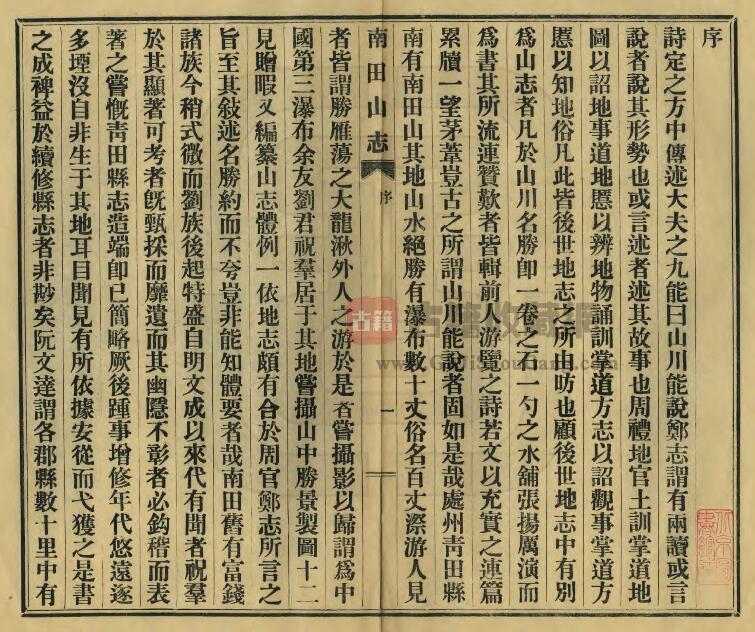 序
詩定之方中傳述大夫之九能曰山川能說鄭志謂有兩讀或言
說者說其形勢也或言述者述其故事也周禮地官土訓掌道地
圖以詔地事道地慝以辨地物誦訓掌道方志以詔觀事掌道方
慝以知地俗凡此皆後世地志之所由昉也顧後世地志中有別
爲山志者凡於山川名勝卽一卷之石一勺之水舖張揚厲演而
爲書其所流連贊歎者皆輯前人游覽之詩若文以充實之連篇
累牘一望茅葦豈古之所謂山川能說者固如是哉處州靑田縣
南有南田山其地山水絕勝有瀑布數十丈俗名百丈漈游人見
南田山志
序
一
者皆謂勝雁蕩之大龍湫外人之游於是者嘗攝影以歸謂爲中
國第三瀑布余友劉君祝羣居于其地嘗攝山中勝景製圖十二
見贈暇又編纂山志體例一依地志頗有合於周官鄭志所言之
旨至其敍述名勝約而不夸豈非能知體要者哉南田舊有富錢
諸族今稍式微而劉族後起特盛自明文成以來代有聞者祝羣
於其顯著可考者旣甄採而靡遺而其幽隱不彰者必鈎稽而表
著之嘗慨靑田縣志造端卽已簡略厥後踵事增修年代悠遠遂
多堙沒自非生于其地耳目聞見有所依據安從而弋獲之是書
之成裨益於續修縣志者非尠矣阮文達謂各郡縣數十里中有
古籍